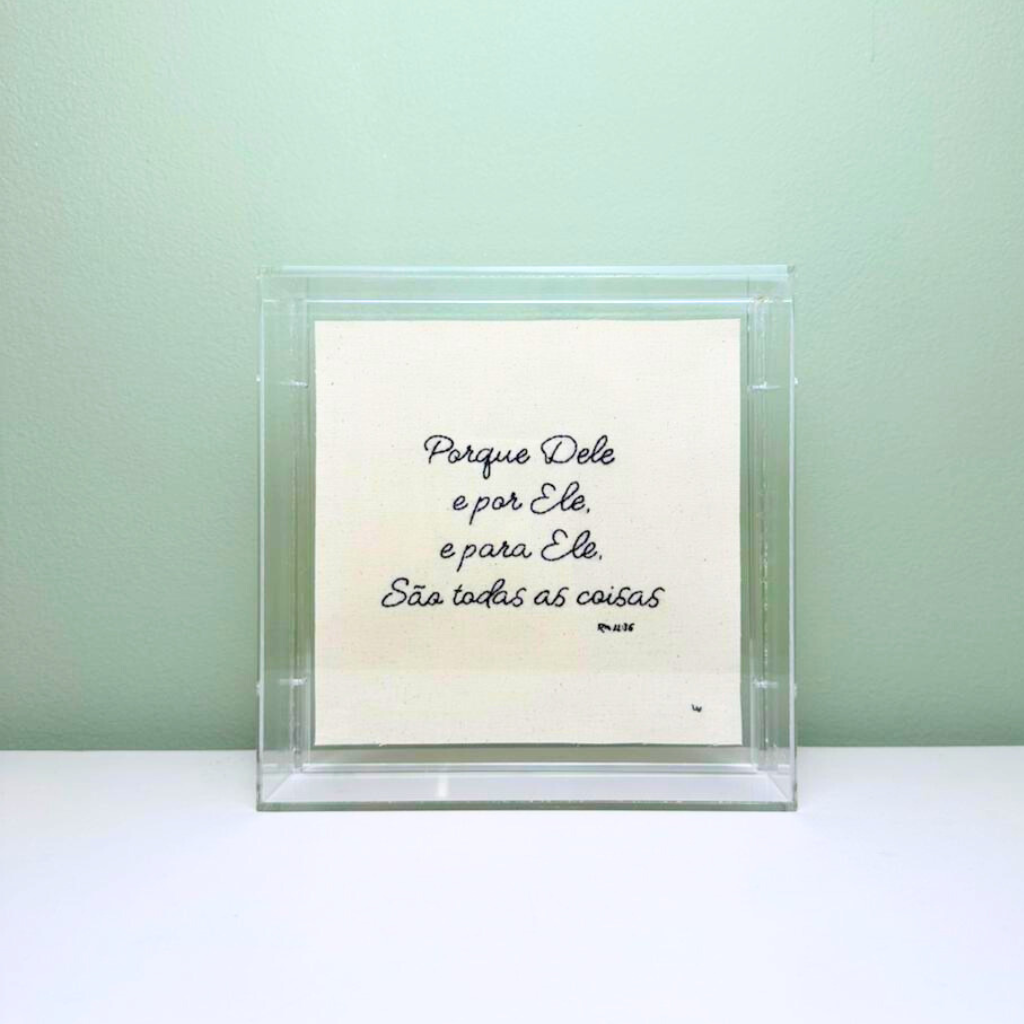 Porque Dele
e por Ele,
e para Ele,
São todas as coisas
Rm 11:36
W